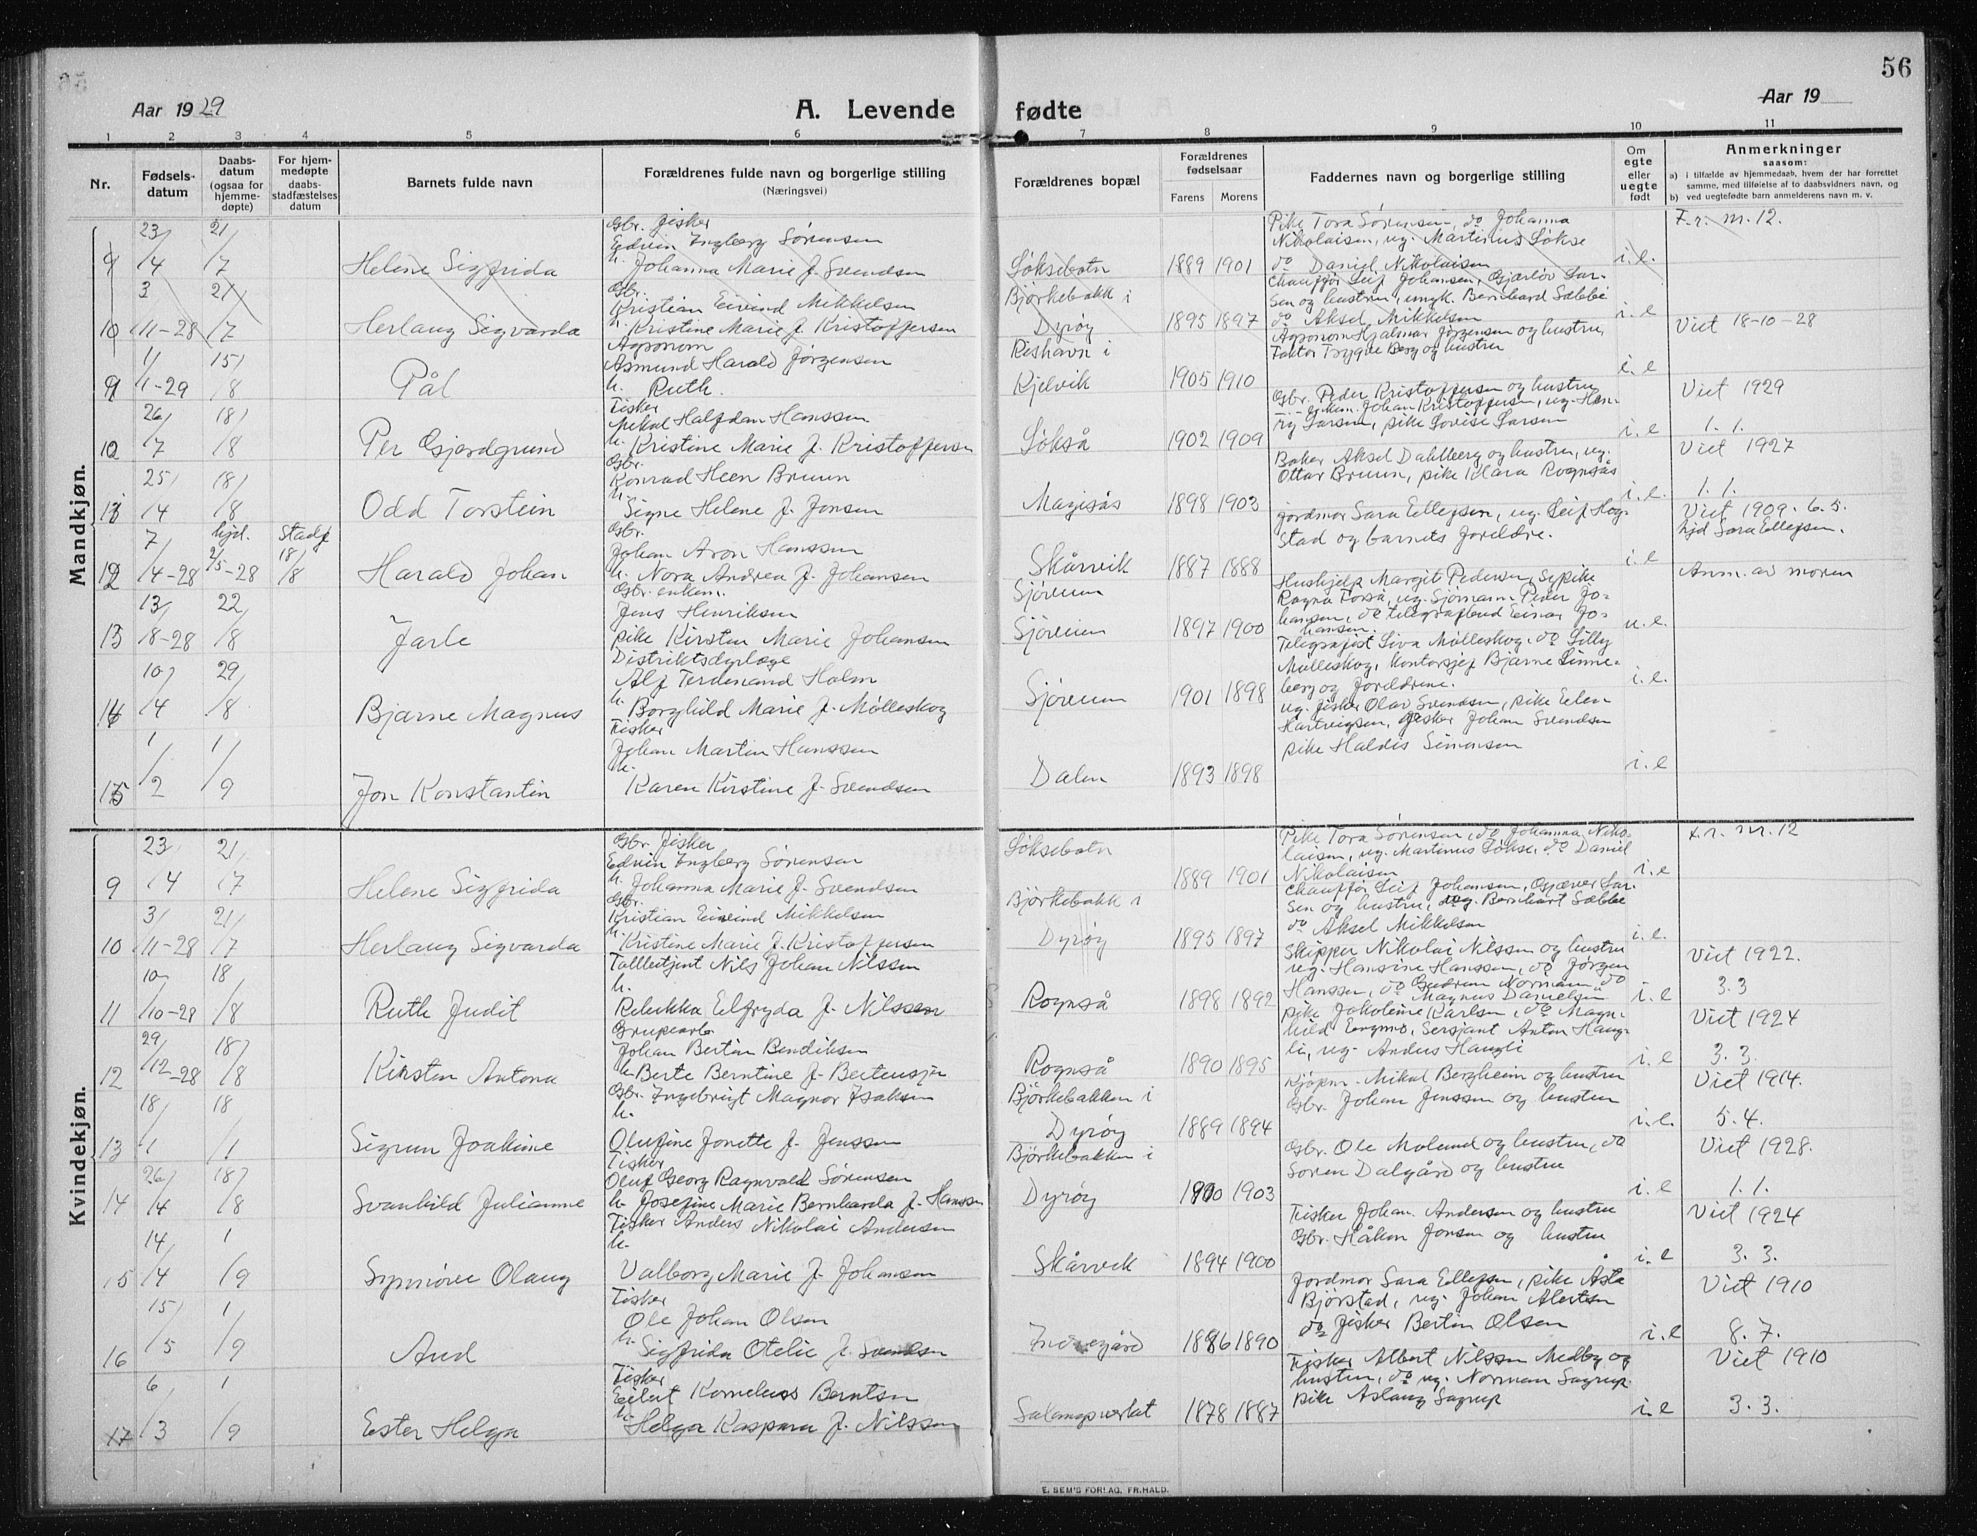 56
Aar 1929
A. Levende fødte
Aar 19
1 2 3 4 5 6 7 8 9 10 11
Nr.
Fødsels-
datum
Daabs-
datum
(ogsaa for
hjemme-
døpte)
For hjem-
medøpte
daabs-
stadfæstelses
datum
Barnets fulde navn
Forældrenes fulde navn og borgerlige stilling
(Næringsvei)
Forældrenes bopæl
Forældrenes
fødselsaar
Farens Morens
Faddernes navn og borgerlige stilling
Om
egte
eller
uegte
født
Anmerkninger
saasom:
a) i tilfælde av hjemmedaab, hvem der har forrettet
samme, med tilføielse af to daabsvidners navn, og
b) ved uegtefødte barn anmelderens navn m. v.
Mandkjøn.
9 23/4 21/7 Helene Sigfrida
Gbr. fisker
Edvin Ingberg Sørensen
h. Johanna Marie f. Svendsen
Løksebotn 1889 1901
Pike Tora Sørensen, do Johanna
Nikolaisen, ug. Martinus Løkse
do Daniel Nikolaisen
i. e. F. r. m. 12.
10 3/11-28 21/7 Herlaug Sigvarda
Gbr.
Kristian Eivind Mikkelsen
h. Kristine Marie f. Kristoffersen
Bjørkebakk i
Dyrøy 1895 1897
Chauffør Leif Johansen, Gjærløv Lar-
sen og hustru, ungk. Bernhard Sæbbe
do Aksel Mikkelsen
i. e Viet 18-10-28
9 1/1-29 15/8 Pål
Agronom
Asmund Harald Jørgensen
h. Ruth.
Rishavn i
Kjelvik 1905 1910
Agronom Hjalmar Jørgensen og hustru,
Faktor Trygve Berg og hustru
i. e Viet 1929
10 26/7 18/8 Per Gjerdgrund
Fisker
Mekal Halfdan Hanssen
h. Kristine Marie f. Kristoffersen
Løkså 1902 1909
Gbr. Peder Kristoffersen og hustru
enkem. Johan Kristoffersen, ug. Hen-
rig Larsen, pike Lovise Larsen
i. e 1. 1.
Viet 1927
25/4 18/8 Odd Torstein
Gbr.
Konrad Heen Bruun
h. Signe Helene f. Jensen
Magisås 1898 1903
Baker Aksel Dahlberg og hustru, ug.
Ottar Bruun, pike Klara Rognsås
i. e. 1. 1.
Viet 1909. 6. 5.
12 7/4-28 hjd. 2/5-28 Stadf 18/8 Harald Johan
Gbr.
Johan Aron Hanssen
h. Nora Andrea f. Johansen
Skårvik 1887 1888
Jordmor Sara Ellefsen, ug. Leif Hog-
stad og barnets foreldre.
i. e hjd Sara Ellefsen.
13 13/8-28 22/8 Jarle
Gbr. enkem.
Jens Henriksen
pike Kirsten Marie Johansen
Sjøveien
Sjøveien 1897 1900
Hushjelp Margit Pedersen, sypike
Ragna Forså, ug. Sjømann Peder Jo-
hansen, do telegrafbud Einar Jo-
hansen.
u. e. Anm. av moren
14 10/4 29/8 Bjarne Magnus
Distriktsdyrlæge
Alf Ferdenand Holm
h. Borghild Marie f. Mølleskog
Sjøveien 1901 1898
Telegrafist Liva Mølleskog, do Lilly
Mølleskog, kontorsjef Bjarne Linne-
berg og foreldrene.
i. e.
15 1/2 1/9 Jon Konstantin
Fisker
Johan Martin Hanssen
h.
Karen Kirstine f. Svendsen
Dalen 1893 1898
ug. fisker Olav Svendsen, pike Elen
Hartvigsen, fisker Johan Svendsen
pike Haldis Simonsen
i. e
Kvindekjøn.
9 23/4 21/7 Helene Sigfrida
Gbr. fisker
Edvin Ingberg Sørensen
h. Johanna Marie f. Svendsen
Løksebotn 1889 1901
Pike Tora Sørensen, do Johanna Niko-
laisen, ug. Martinus Løkse, do Daniel
Nikolaisen
i. e F. r. m. 12
10 3/11-28 21/7 Herlaug Sigvarda
Gbr.
Kristian Eivind Mikkelsen
h. Kristine Marie f. Kristoffersen
Bjørkebakk i
Dyrøy 1895 1897
Chauffør Leif Johansen, Gjæver Lar-
sen og hustru, ug. Bernhart Sæbbe
do Aksel Mikkelsen.
i. e.
11 10/10-28 18/8 Ruth Judit
Tollbetjent Nils Johan Nilssen
h.
Rebekka Elfryda f. Nilssen
Rognså 1898 1892
Skipper Nikolai Nilssen og hustru
ug. Hansine Hanssen, do Jørgen
Hanssen, do Gudrun Normann do
Magnus Danielsen
i. e Viet 1922.
3. 3
12 29/12-28 18/8 Kirsten Antona
Grubearb.
Johan Bertin Bendiksen
h. Berte Berntine f. Berteussen
Rognså 1890 1895
pike Jakobine Karlsen, do Magn-
hild Engmo, Sersjant Anton Haug-
li, ug. Anders Haugli
i. e Viet 1924
3. 3.
13 18/1 18/1 Sigrun Joakime
Gbr. Ingebrigt Magnor Isaksen
h.
Olufine Jonette f. Jenssen
Bjørkebakken i
Dyrøy 1889 1894
Kjøpm. Mikal Bergheim og hustru
Gbr. Johan Jenssen og hustru
i. e. Viet 1914.
5. 4.
14 26/4 18/8 Svanhild Julianne
Fisker
Oluf Georg Ragnvald Sørensen
h. Josefine Marie Bernharda f. Hanssen
Bjørkebakken i
Dyrøy 1900 1903
Gbr. Ole Moland og hustru, do
Søren Dalgård og hustru
i. e Viet 1928.
1. 1.
15 14/4 1/9 Synnøve Olaug
Fisker Anders Nikolai Andersen
h.
Valborg Marie f. Johansen
Skårvik 1894 1900
Fisker Johan Andersen og hustru
Gbr. Håkon Jensen og hustru
i. e Viet 1924
3. 3.
16 15/5 1/9 Aud
Fisker
Ole Johan Olsen
h. Sigfrida Otelie f. Svendsen
Indregård 1886 1890
Jordmor Sara Ellefsen, pike Asta
Bjørstad, ug. Johan Albertsen
do fisker Bertin Olsen
i. e Viet 1910
8. 7.
17 6/3 1/9 Ester Helga
Fisker
Eilert Kornelius Berntsen
h. Helga Kaspara f. Nilssen
Salangsverket 1878 1887
Fisker Albert Nilssen Medby og
hustru, do ug. Norman Sagrup.
pike Aslaug Sagrup
i. e Viet 1910
3. 3.
E. SEM'S FORLAG, FR.HALD.